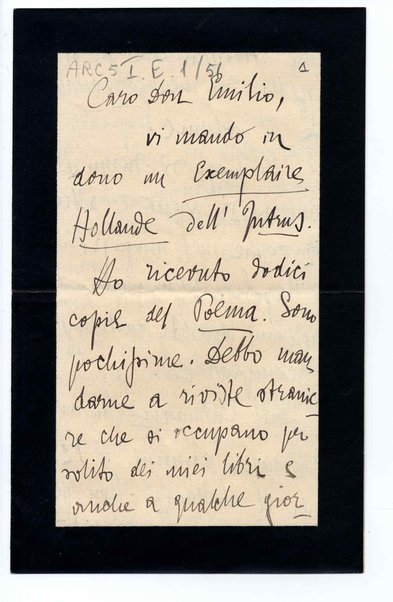 ARC 5 I. E. 1/56 1
Caro Don Emilio,
vi mando in
dono un Exemplaire
Hollande dell' Intrus.
Ho ricevuto dodici
copie del Poema. Sono
pochissime. Debbo man
darne a riviste stranie
re che si occupano per
solito dei miei libri e
anche a qualche gior